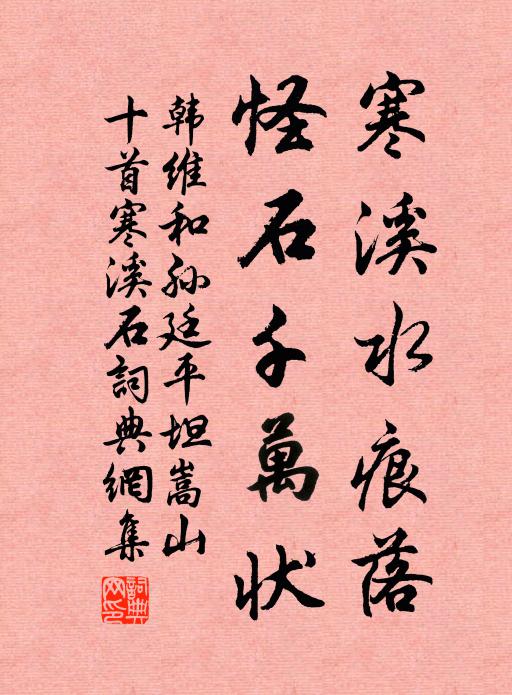 寒溪水痕落
怪石千萬状
韩維和孙廷平坦嵩山
十首寒溪石詞典網集
詞典